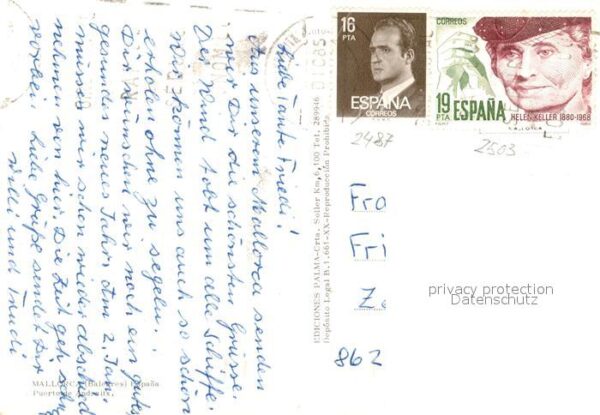 Liebe Tante Friedi!
Aus unserem Mallorca senden
wir Dir die schönsten Grüsse.
Der Wind tobt um alle Schiffe.
Wir können uns auch so schön
erholen ohne zu segeln.
Dir wünschen wir noch ein gutes
gesundes neues Jahr. Am 2. Jan.
müssen wir schon wieder Abschied
nehmen von hier. Die Zeit geht schnell
vorbei. Liebe Grüße sendet Dir
Willi und Trudi
MALLORCA (Baleares) España
Puerto de Andraitx.
EDICIONES PALMA-Crta. Soller Km,6,100 Tel. 289946
Depósito Legal B.1.661-XX-Reproducción Prohibida
16
PTA
ESPAÑA
CORREOS
CORREOS
19
PTA
ESPAÑA
HELEN KELLER 1880-1968
2487
2503
Fro
Fri
Z.
862
privacy protection
Datenschutz